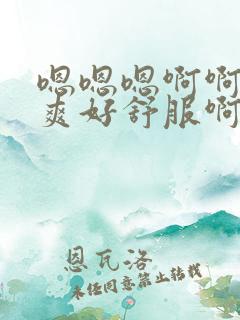 嗯嗯嗯啊啊
爽好舒服啊
恩瓦洛
未经同意禁止转载